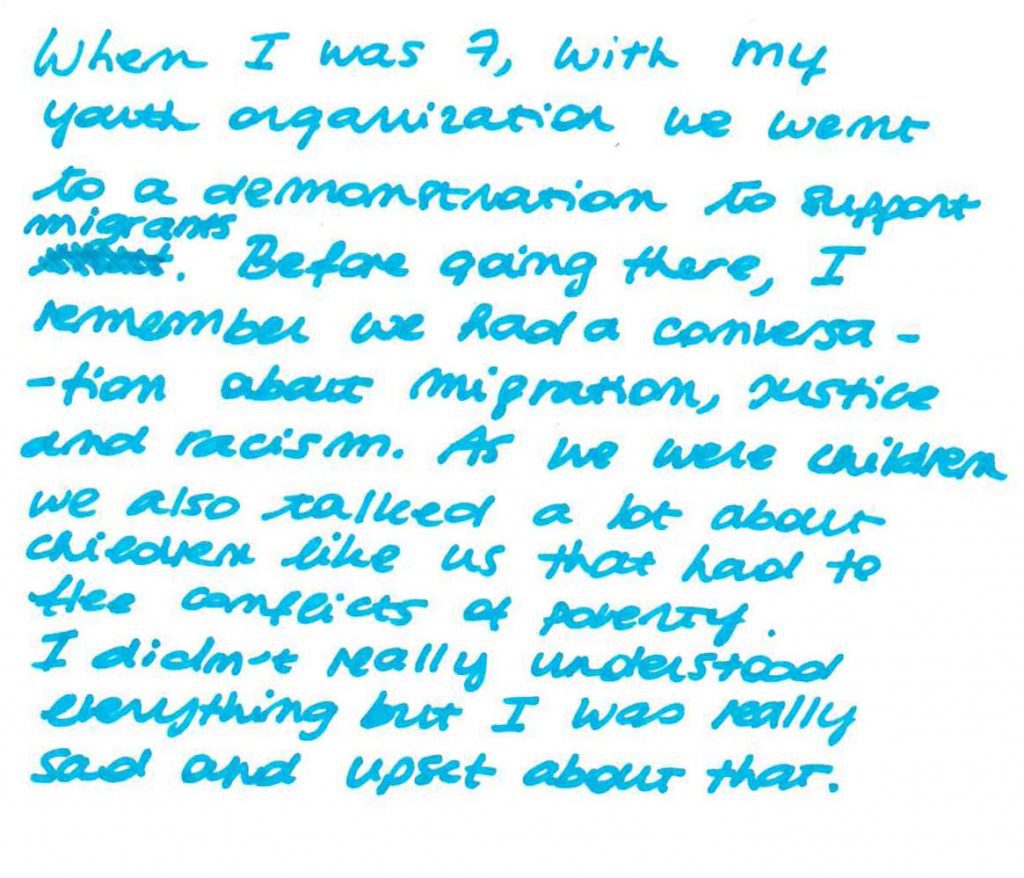 When I was 7, with my
youth organization we went
to a demonstration to support
migrants
. Before going there, I
remember we had a conversa -
-tion about migration, justice
and racism. As we were children
we also talked a lot about
children like us that had to
flee conflicts of poverty.
I didn't really understood
everything but I was really
sad and upset about that.